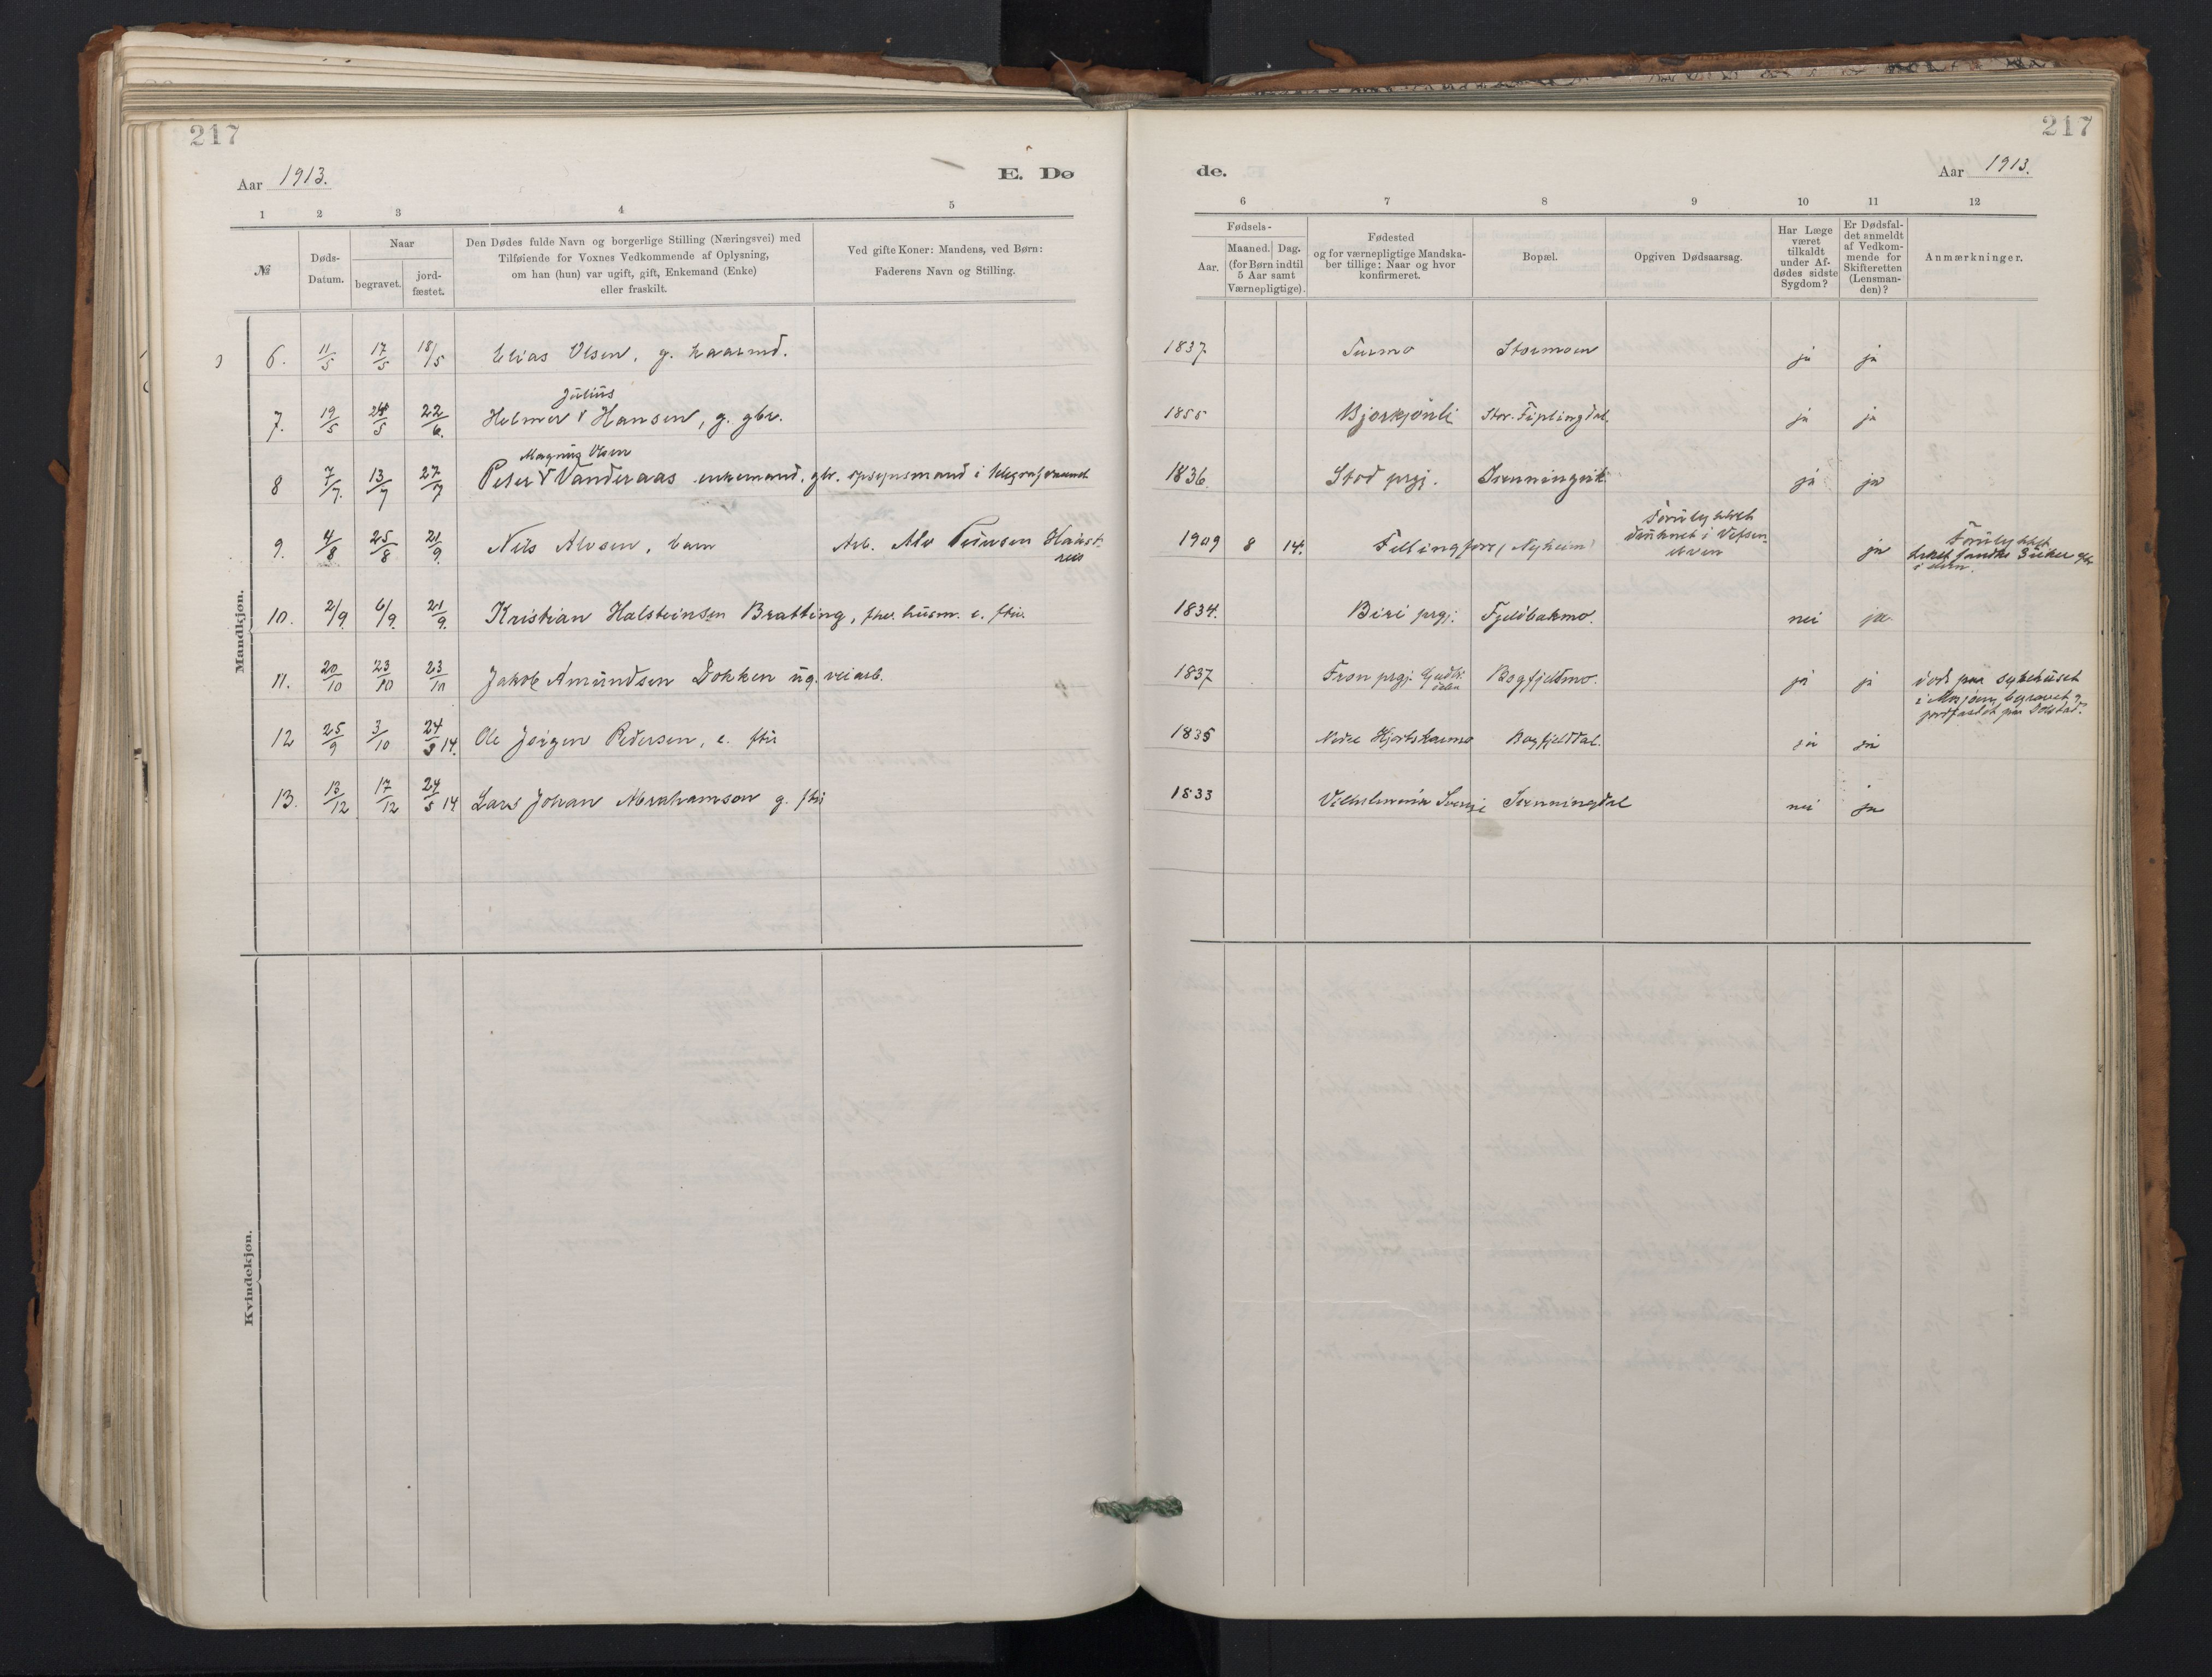 217
Aar 1913.
E. Dø
1 2 3 4 5
№
Døds-
Datum.
Naar
begravet.
jord-
fæstet.
Den Dødes fulde Navn og borgerlige Stilling (Næringsvei) med
Tilføiende for Voxnes Vedkommende af Oplysning,
om han (hun) var ugift, gift, Enkemand (Enke)
eller fraskilt.
Ved gifte Koner: Mandens, ved Børn:
Faderens Navn og Stilling.
Mandkjøn.
6. 11/5 17/5 18/5 Elias Olsen, g. kaarmd.
Julius
7. 19/5 /5 22/6. Helmer V Hansen, g. gbr.
Magnus Olsen
8 7/7. 13/7 27/7 Peter V Vanderaas enkemand. gbr. opsynsmand i telegrafvæsnet
9. 4/8 25/8 21/9. Nils Alvsen, barn Arb. Alv
10. 2/9. 6/9. 21/9. Kristian Halsteinsen Bratting, fhv. husm. e. ftu.
11. 20/10 23/10 23/10 Jakob Amundsen Dokken ug. veiarb.
12 25/9 3/10 24/ 14. Ole Jørgen Pedersen, e. ftu
13. 13/12 17/12 24/5 14 Lars Johan Abrahamson g. ftu
Kvindekjøn.
217
de.
Aar 1913.
6 7 8 9 10 11 12
Fødsels-
Aar.
Maaned. Dag.
(for Børn indtil
5 Aar samt
Værnepligtige).
Fødested
og for værnepligtige Mandska-
ber tillige: Naar og hvor
konfirmeret.
Bopæl.
Opgiven Dødsaarsag.
Har Læge
været
tilkaldt
under Af-
dødes sidste
Sygdom?
Er Dødsfal-
det anmeldt
af Vedkom-
mende for
Skifteretten
(Lensman-
den)?
Anmærkninger.
1837 Turmo Stormoen ja ja
1855 Bjorkjønli Stor-Fiplingdal. ja ja
1836. Stod prgj. Svenningvik. ja ja
1909 8 14. Fellingfors, Nyheim
Forulykket
druknet i Vefsen
elven
ja
Forulykket
liket fandtes 3 uker
i elven.
1834. Biri prgj. Fjeldbakmo. nei ja
1837 Fron prgj. Gudbr.
dalen
Bogfjeldmo. ja ja
død paa sykehuset
i Mosjøen, begravet og
jordfæstet paa Dolstad.
1835 Nedre Hjortskarmo Bogfjelddal. ja ja
1833 Vilhelmina Sverige Svenningdal nei ja